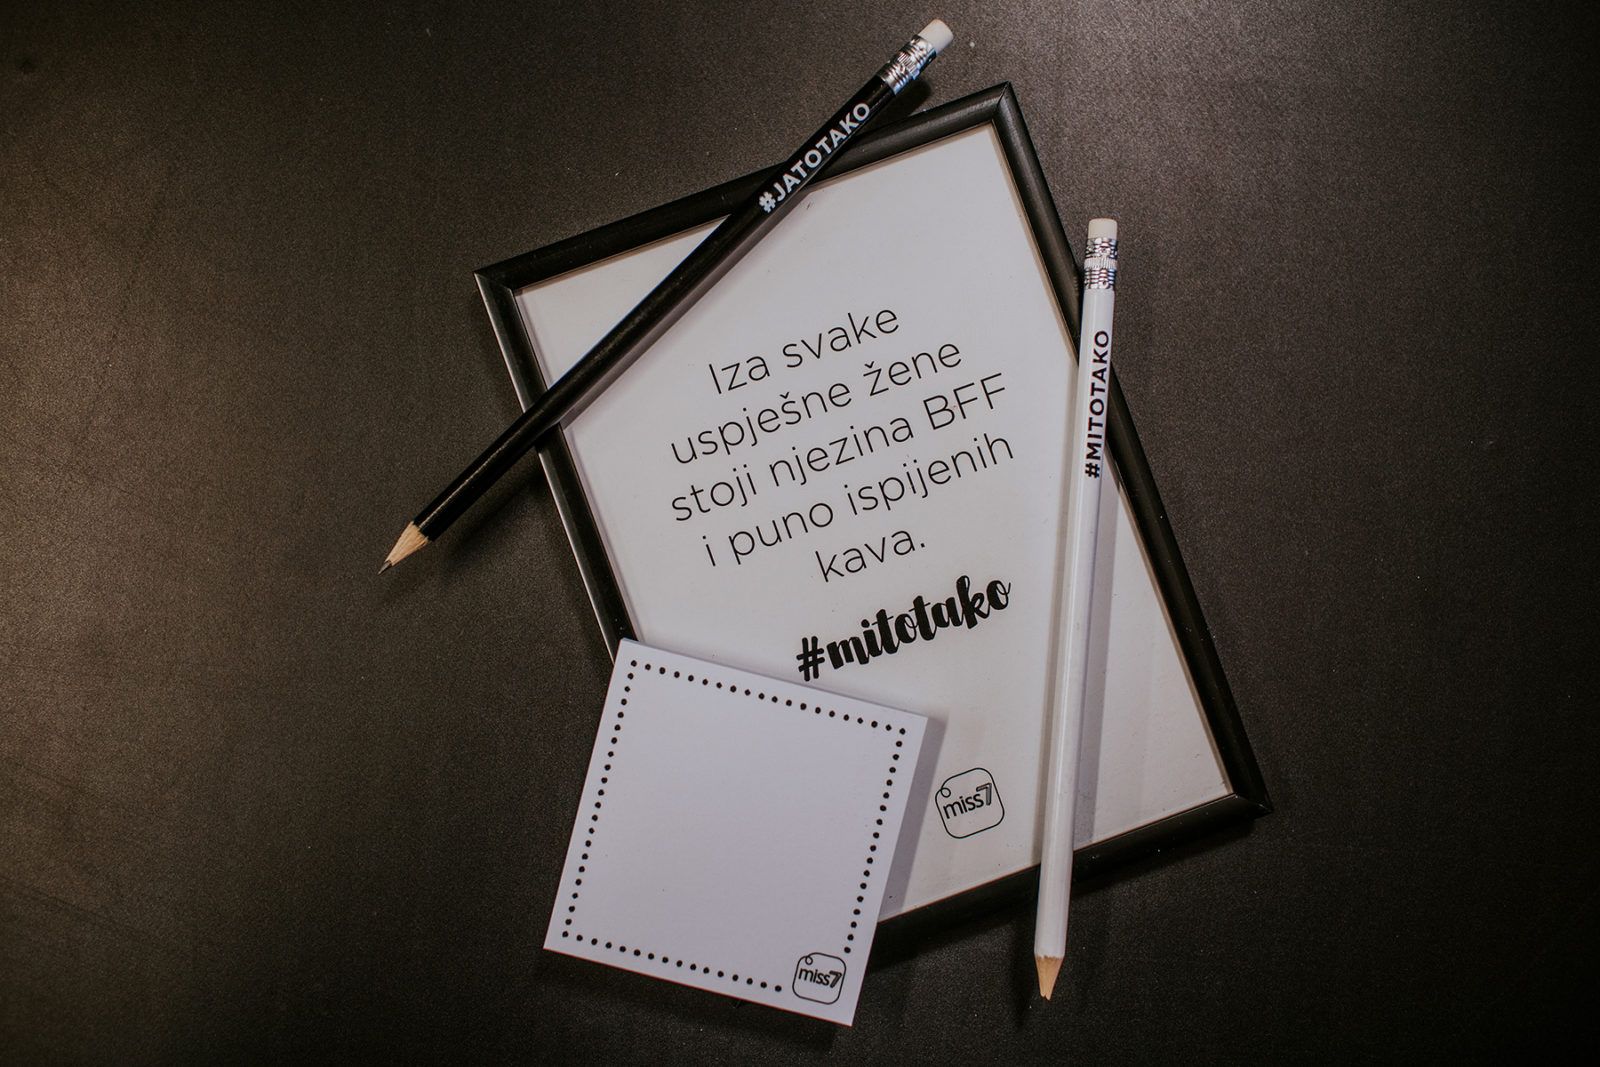 #JATOTAKO
Iza svake
uspješne žene
stoji njezina BFF
i puno ispijenih
kava.
#mitotako
#MITOTAKO
miss7
miss7